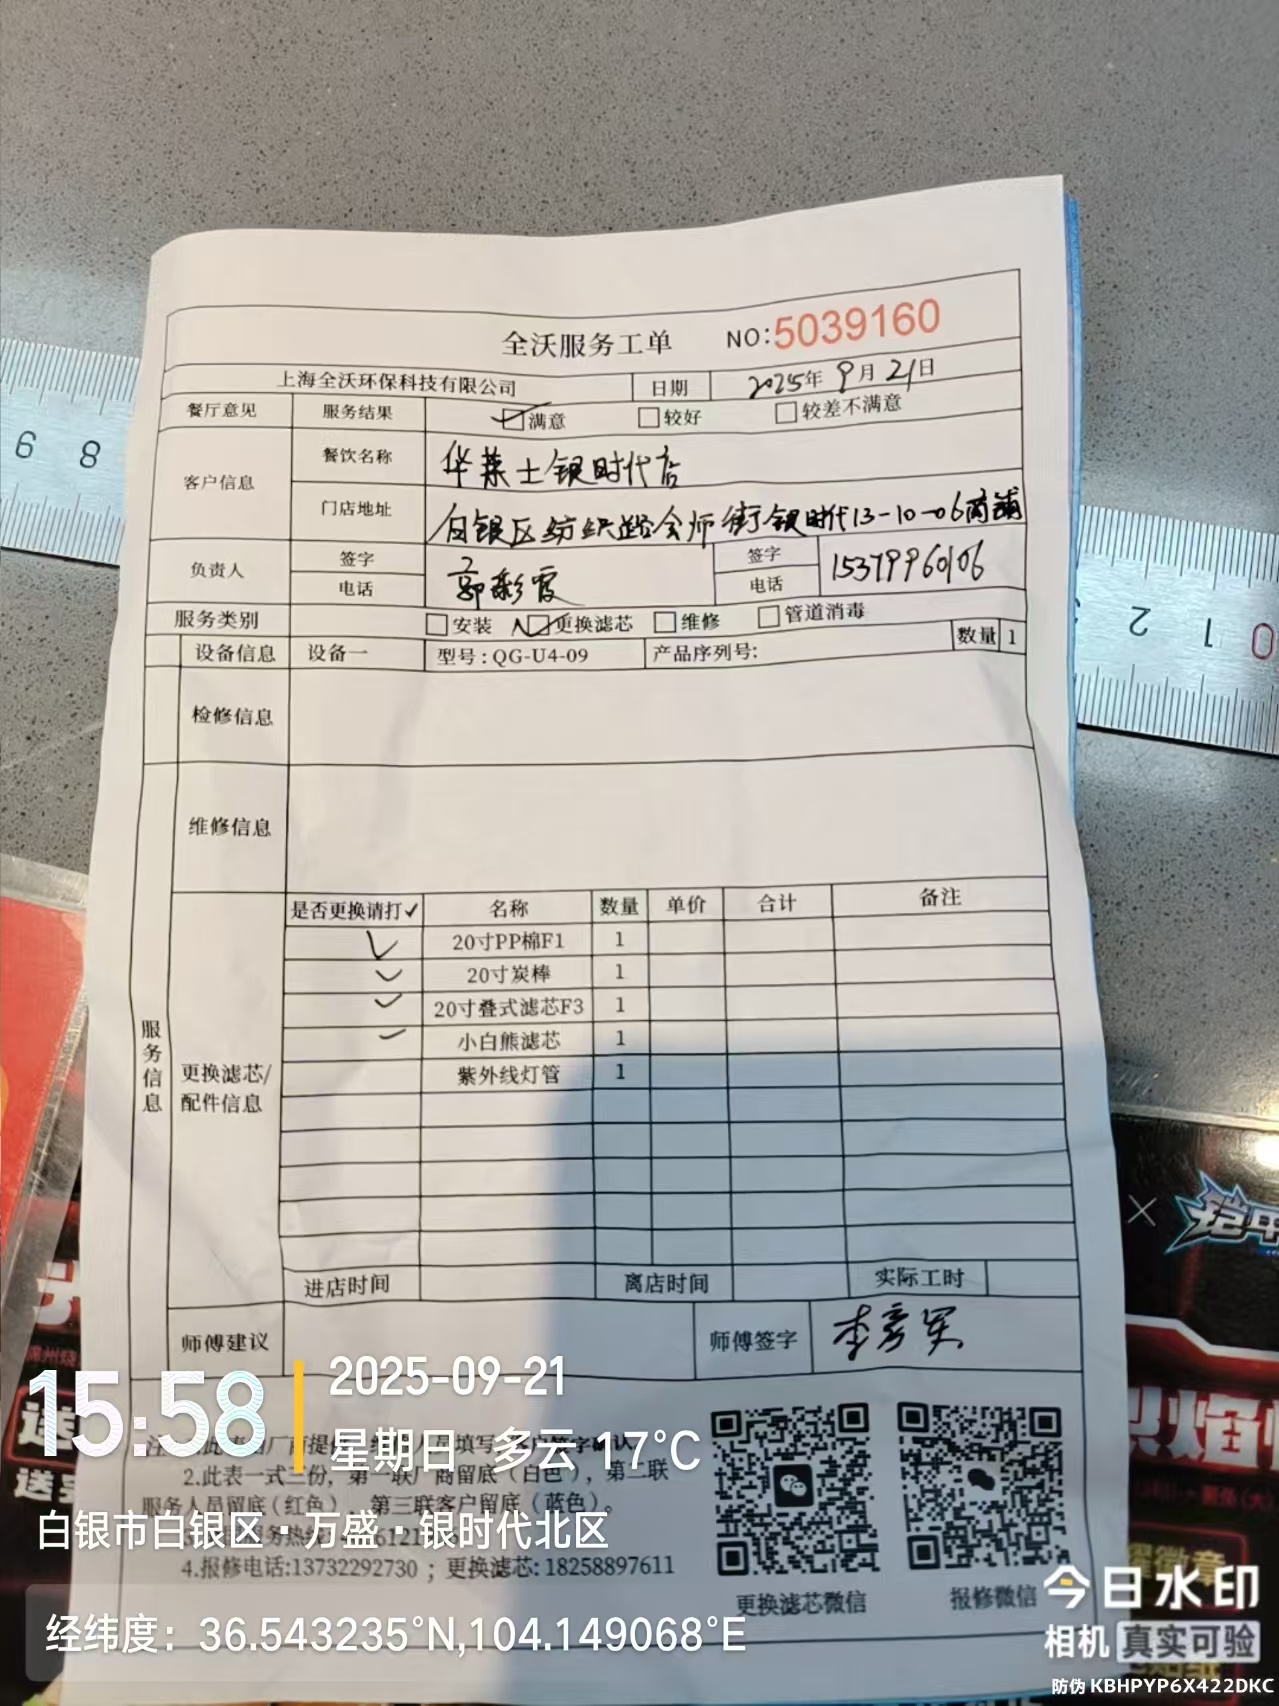 全沃服务工单 NO:5039160
上海全沃环保科技有限公司 日期 2025年9月21日
餐厅意见 服务结果 满意 较好 较差不满意
客户信息 餐饮名称 华莱士银时代店
门店地址 白银区纺织路会师街银时代13-10-06商铺
负责人 签字 郭彩霞 签字
电话 电话 15379960106
服务类别 安装 更换滤芯 维修 管道消毒
设备信息 设备一 型号:QG-U4-09 产品序列号: 数量 1
检修信息
维修信息
服务信息
更换滤芯/
配件信息
是否更换请打✓ 名称 数量 单价 合计 备注
✓ 20寸PP棉F1 1
✓ 20寸炭棒 1
✓ 20寸叠式滤芯F3 1
✓ 小白熊滤芯 1
紫外线灯管 1
进店时间 离店时间 实际工时
师傅建议 师傅签字
2.此表一式三份，第一联厂商留底（白色），第二联
服务人员留底（红色） 第三联客户留底（蓝色）。
4.报修电话:13732292730；更换滤芯:18258897611
更换滤芯微信 报修微信
15:58
2025-09-21
星期日 多云 17°C
白银市白银区·万盛·银时代北区
经纬度：36.543235°N,104.149068°E
今日水印
相机 真实可验
防伪 KBHPYP6X422DKC
9 8
2 1 0
×
铠甲
烈焰
送
送